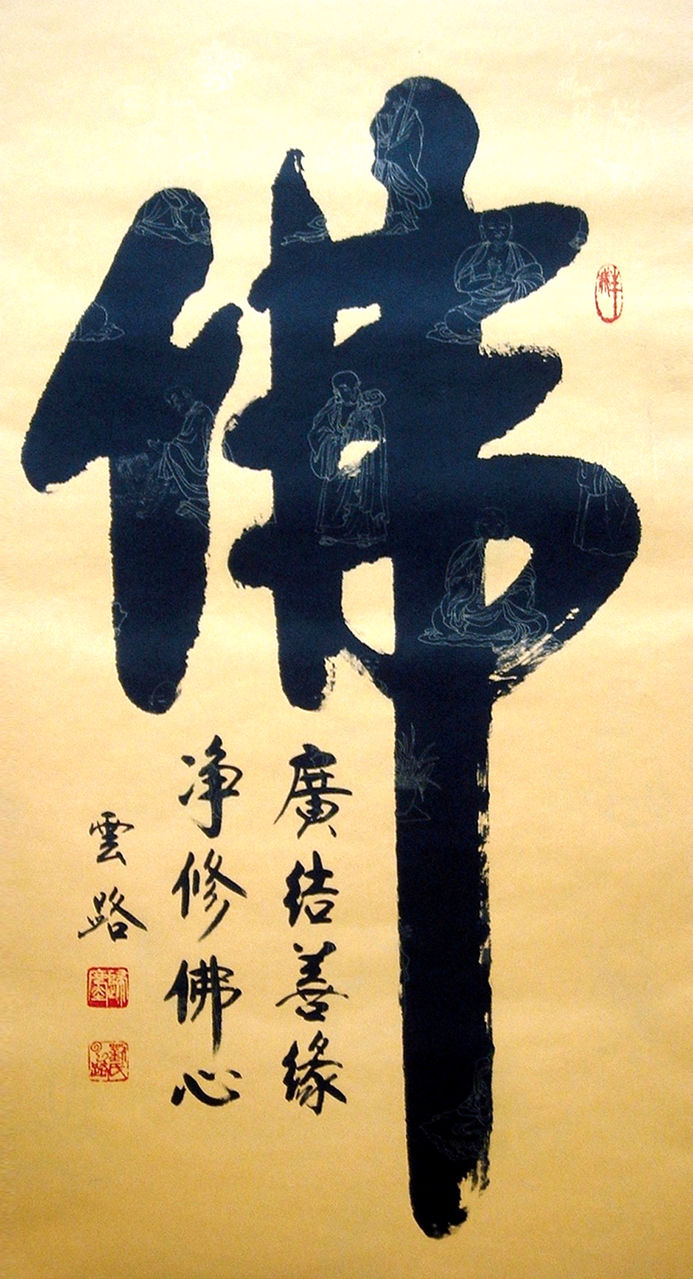 佛
廣結善緣
净修佛心
雲路